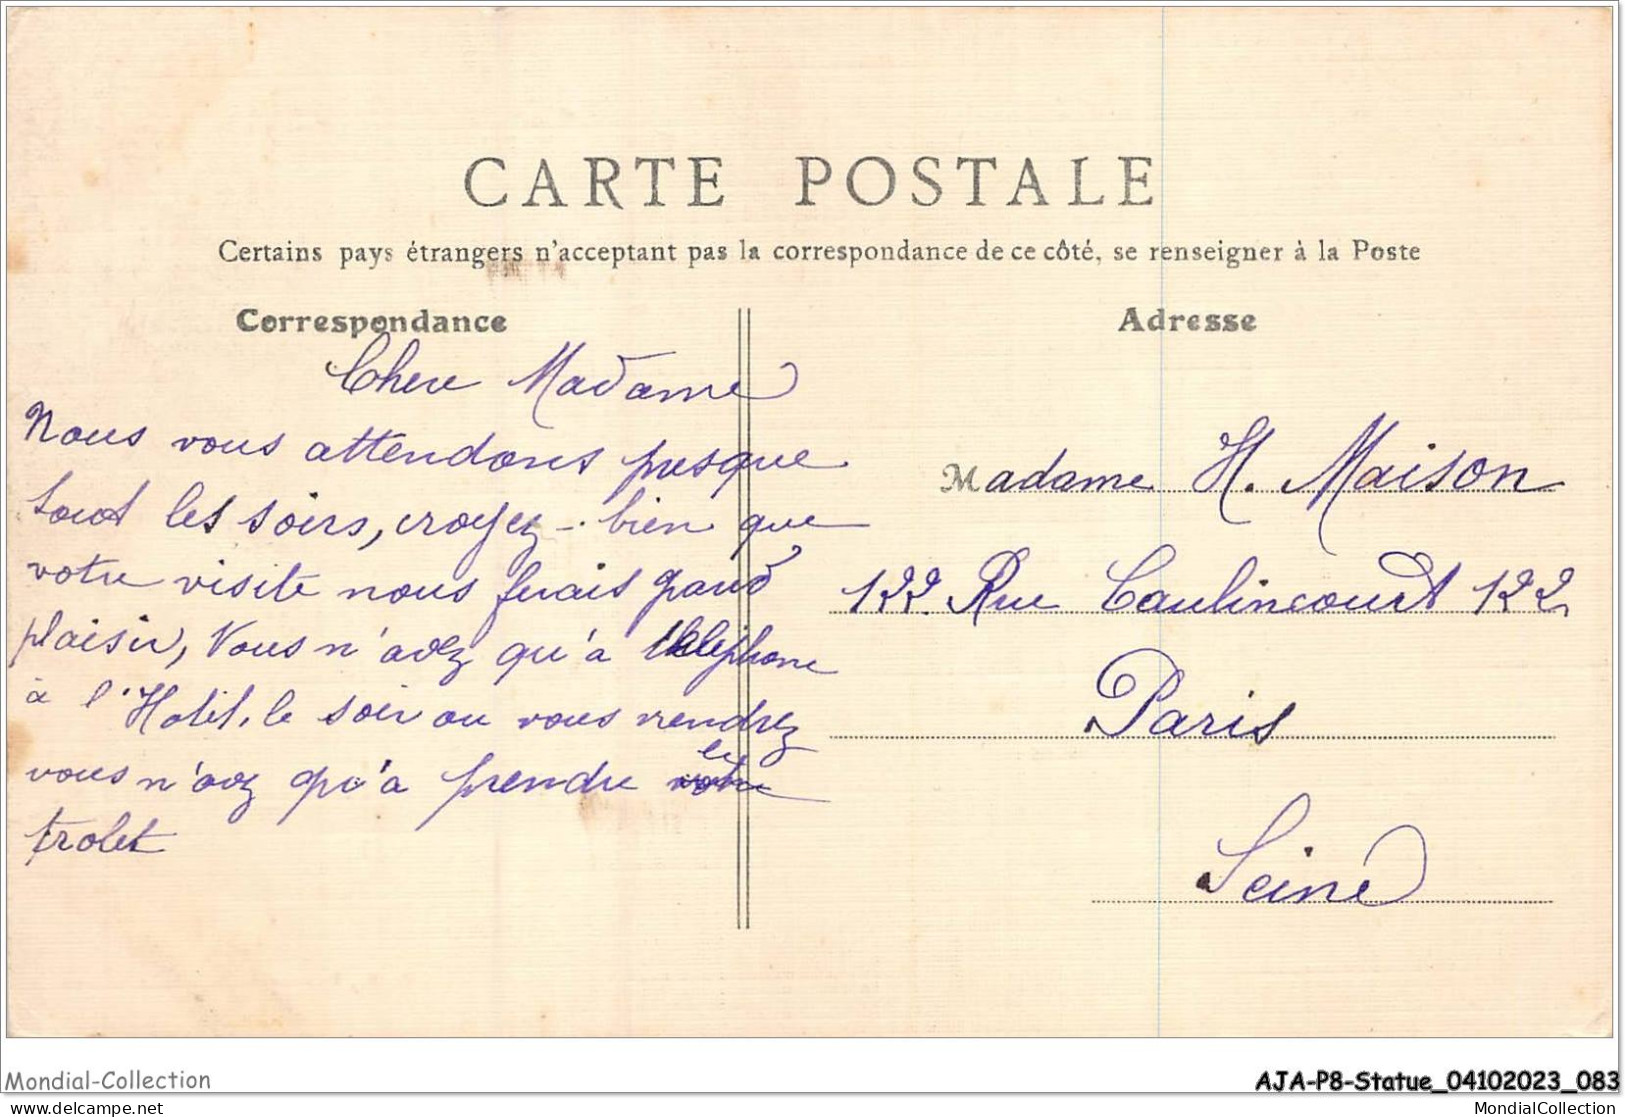 CARTE POSTALE
Certains pays étrangers n'acceptant pas la correspondance de ce côté, se renseigner à la Poste
Correspondance
Chere Madame
Nous vous attendons presque
tout les soirs, croyez - bien que
votre visite nous ferais grand
plaisir, Vous n'avez qu'a telephone
à l'Hotel, le soir ou vous viendrez
vous n'avez qu'a prendre le
trolet
Adresse
Madame H. Maison
122. Rue Caulincourt 122
Paris
Seine
Mondial-Collection
AJA-P8-Statue_04102023_083
www.delcampe.net
MondialCollection